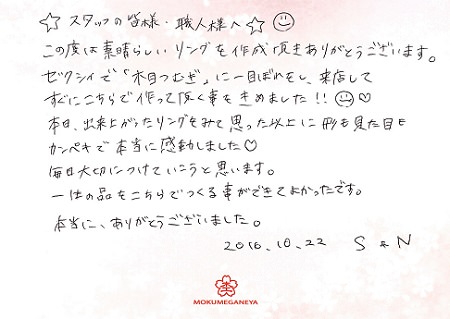 ☆ スタッフの皆様・職人様へ ☆ ☺
この度は素晴らしいリングを作成頂きありがとうございます。
ゼクシィで「木目つむぎ」に一目ぼれをし、来店して
すぐにこちらで作って頂く事をきめました!! ☺♡
本日、出来上がったリングをみて思った以上に形も見た目も
カンペキで本当に感動しました♡
毎日大切につけていこうと思います。
一生の品をこちらでつくる事ができてよかったです。
本当に、ありがとうございました。
2010.10.22 S & N
MOKUMEGANEYA